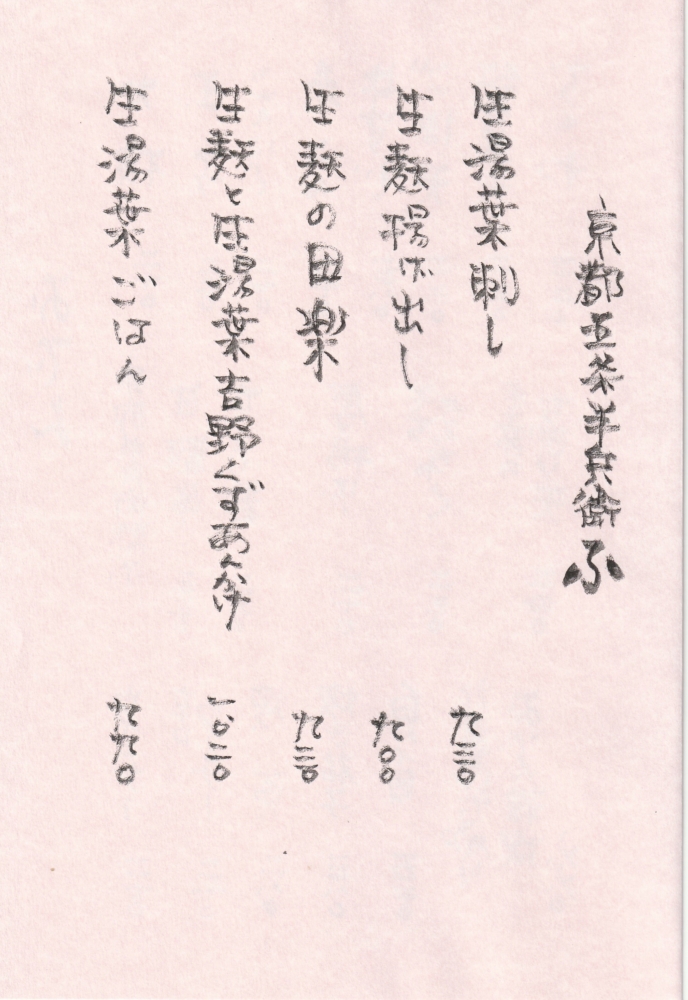 京都五条半兵衛ふ
生湯葉刺し 九三〇
生麩揚げ出し 九〇〇
生麩の田楽 九三〇
生麩と生湯葉吉野くずあんかけ 一〇二〇
生湯葉ごはん 九九〇